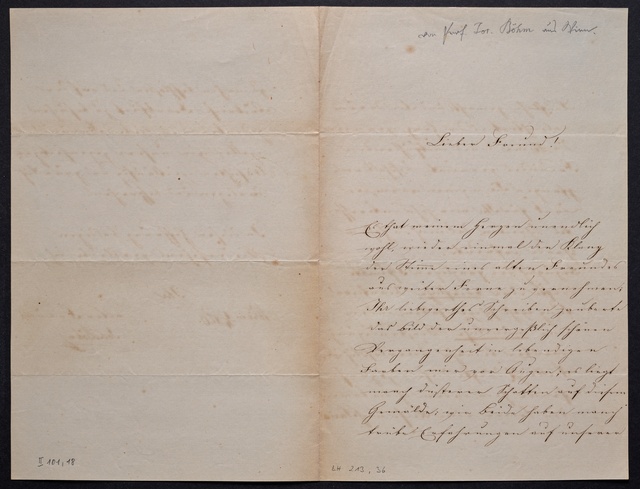 Prof. Jos. Böhm aus Wien.
Lieber Freund!
Es that meinem Herzen unendlich
wohl, wieder einmal den Klang
der Stimme eines alten Freundes
aus weiter Ferne zu vernehmen.
Ihr liebwerthes Schreiben zauberte
das Bild der unvergeßlich schönen
Vergangenheit in lebendigen
Farben mir vor Augen, es liegt
manch düsterer Schatten auf diesem
Gemälde, wir beide haben manch
trübe Erfahrungen auf unserer
II 101, 18
LH 213, 36